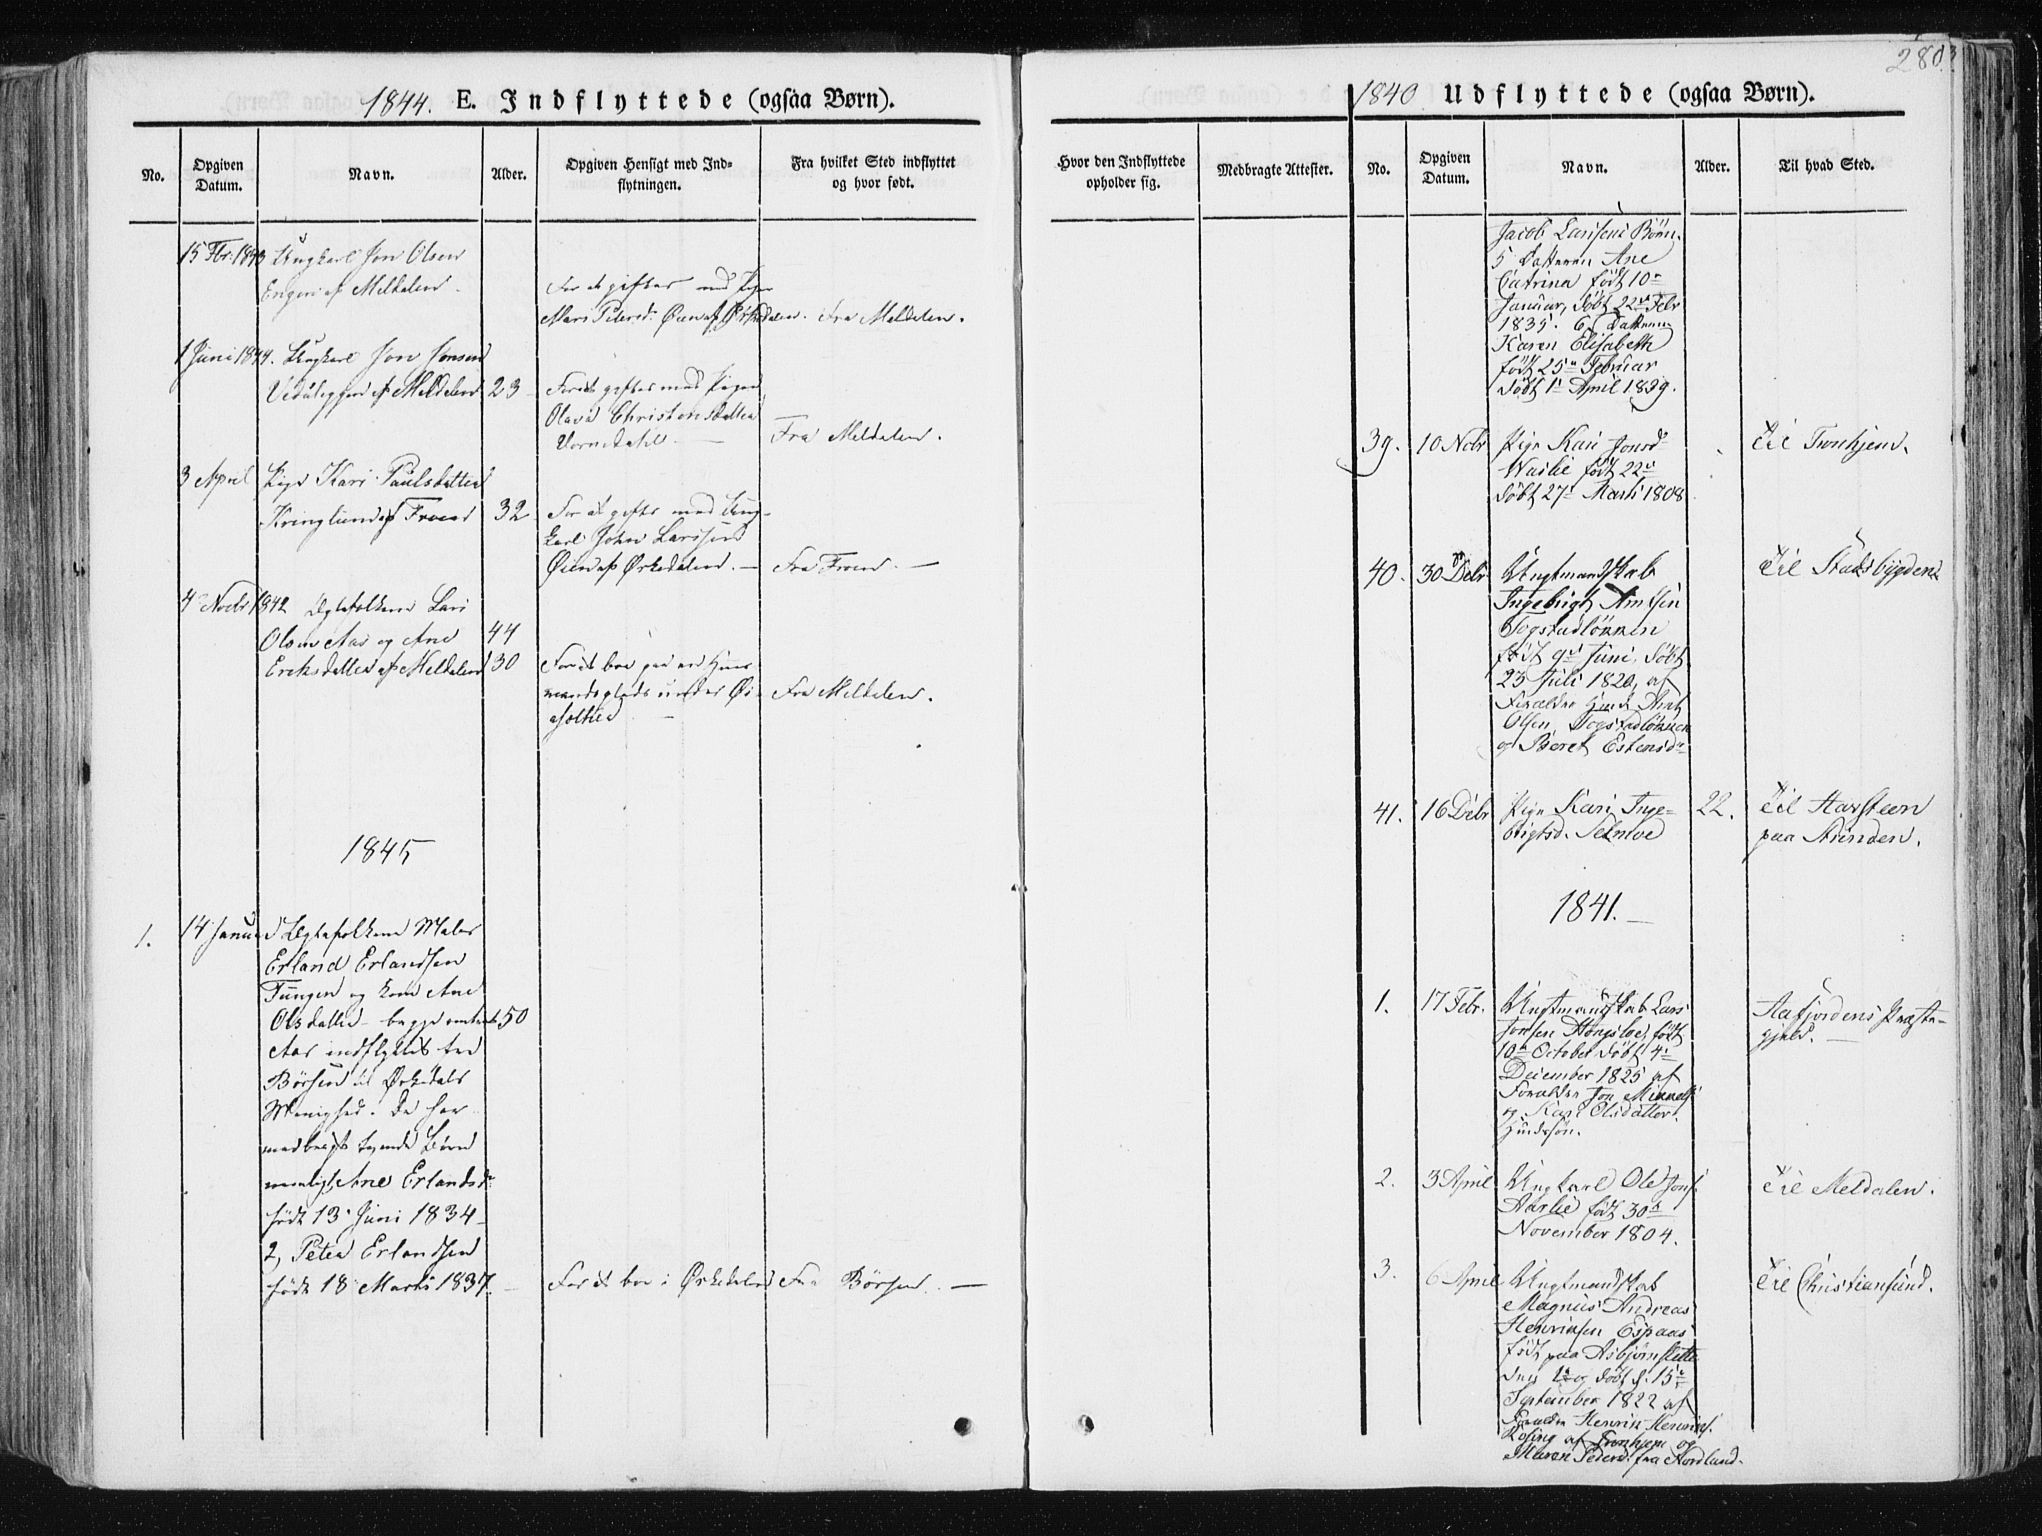 280
1844. E. Indflyttede (ogsaa Børn).
No.
Opgiven Datum.
Navn.
Alder.
Opgiven Hensigt med Indflytningen.
Fra hvilket Sted indflyttet og hvor født.
15 Fbr. 1843 Ungkarl Jon Olsen
Engen af Meldalen.
For at giftes med Pigen
Mari Petersd. Øien af Ørkedalen. Fra Meldalen.
1 Juni 1844. Ungkarl Jon Jonsen
af Meldalen 23
For at giftes med Pigen
Olava Christensdatter
Fra Meldalen.
3 April Pige Kari Paulsdatter
32
For at giftes med Ung-
karl John Larsen
Øien af Ørkedalen. — Fra —
4 Novbr 1842 Ægtefolkene Lars
Olsen Aas og Ane 44
Eriksdatter af Meldalen 30
For at boe paa en Huus-
mandsplads under
Fra Meldalen.
1845
1. 14 Januar Ægtefolkene Maler
Erland Erlandsen
Tungen og Kone Ane
Olsdatter – begge omtrent 50
Aar indflyttet fra
Børsen til Ørkedals
Menighed. De har
medbragt tvende Børn
nemlig Ane Erlandsd.
født 13 Juni 1834
2, Peter Erlandsen
født 18 Marts 1837.
For at boe i Ørkedalen Fra Børsen. —
1840 Udflyttede (ogsaa Børn).
Hvor den Indflyttede opholder sig.
Medbragte Attester.
No.
Opgiven Datum.
Navn.
Alder.
Til hvad Sted.
Jacob Larsens Børn.
5 Datteren Ane
Catrina født 10de
Januar, døbt 22de Febr
1835. 6, Datteren
Karen Elisabeth
født 25de Februar
døbt 1te April 1839.
39. 10 Nobr Pige Kari Jonsd.
født 22de
døbt 27de Marts 1808
Til Tronhjem.
40. 30 Debr Ungtmandskab
Ingebrigt Arntsen
Togstadlønnen
født 9de Juni, døbt
23 Juli 1820, af
Forældre Huusm. Arnt
Olsen Togstadlønnen
og Beret Estensd.
Til Stadsbygden
41. 16 Debr Pige Kari Inge-
brigtsd. 22. Til
paa Strinden.
1841.
1. 17 Febr. Ungtmandskab Lars
Jonsen født
10de October døbt 4de
December 1825 af
Forældre Jon
og Kari Olsdatter.
Aafjordens Præste-
gjeld.
2. 3 April Ungkarl Ole Jons.
Aarlie født 30te
November 1804.
Til Meldalen.
3. 6 April Ungtmandskab
Magnus Andreas
Henriksen Espaas
født paa
døbt d. 15de
September 1822 af
Forældre Henrik Henriks.
Rosing af Tronhjem og
Maren Pedersd. fra Nordland.
Til Christiansund.